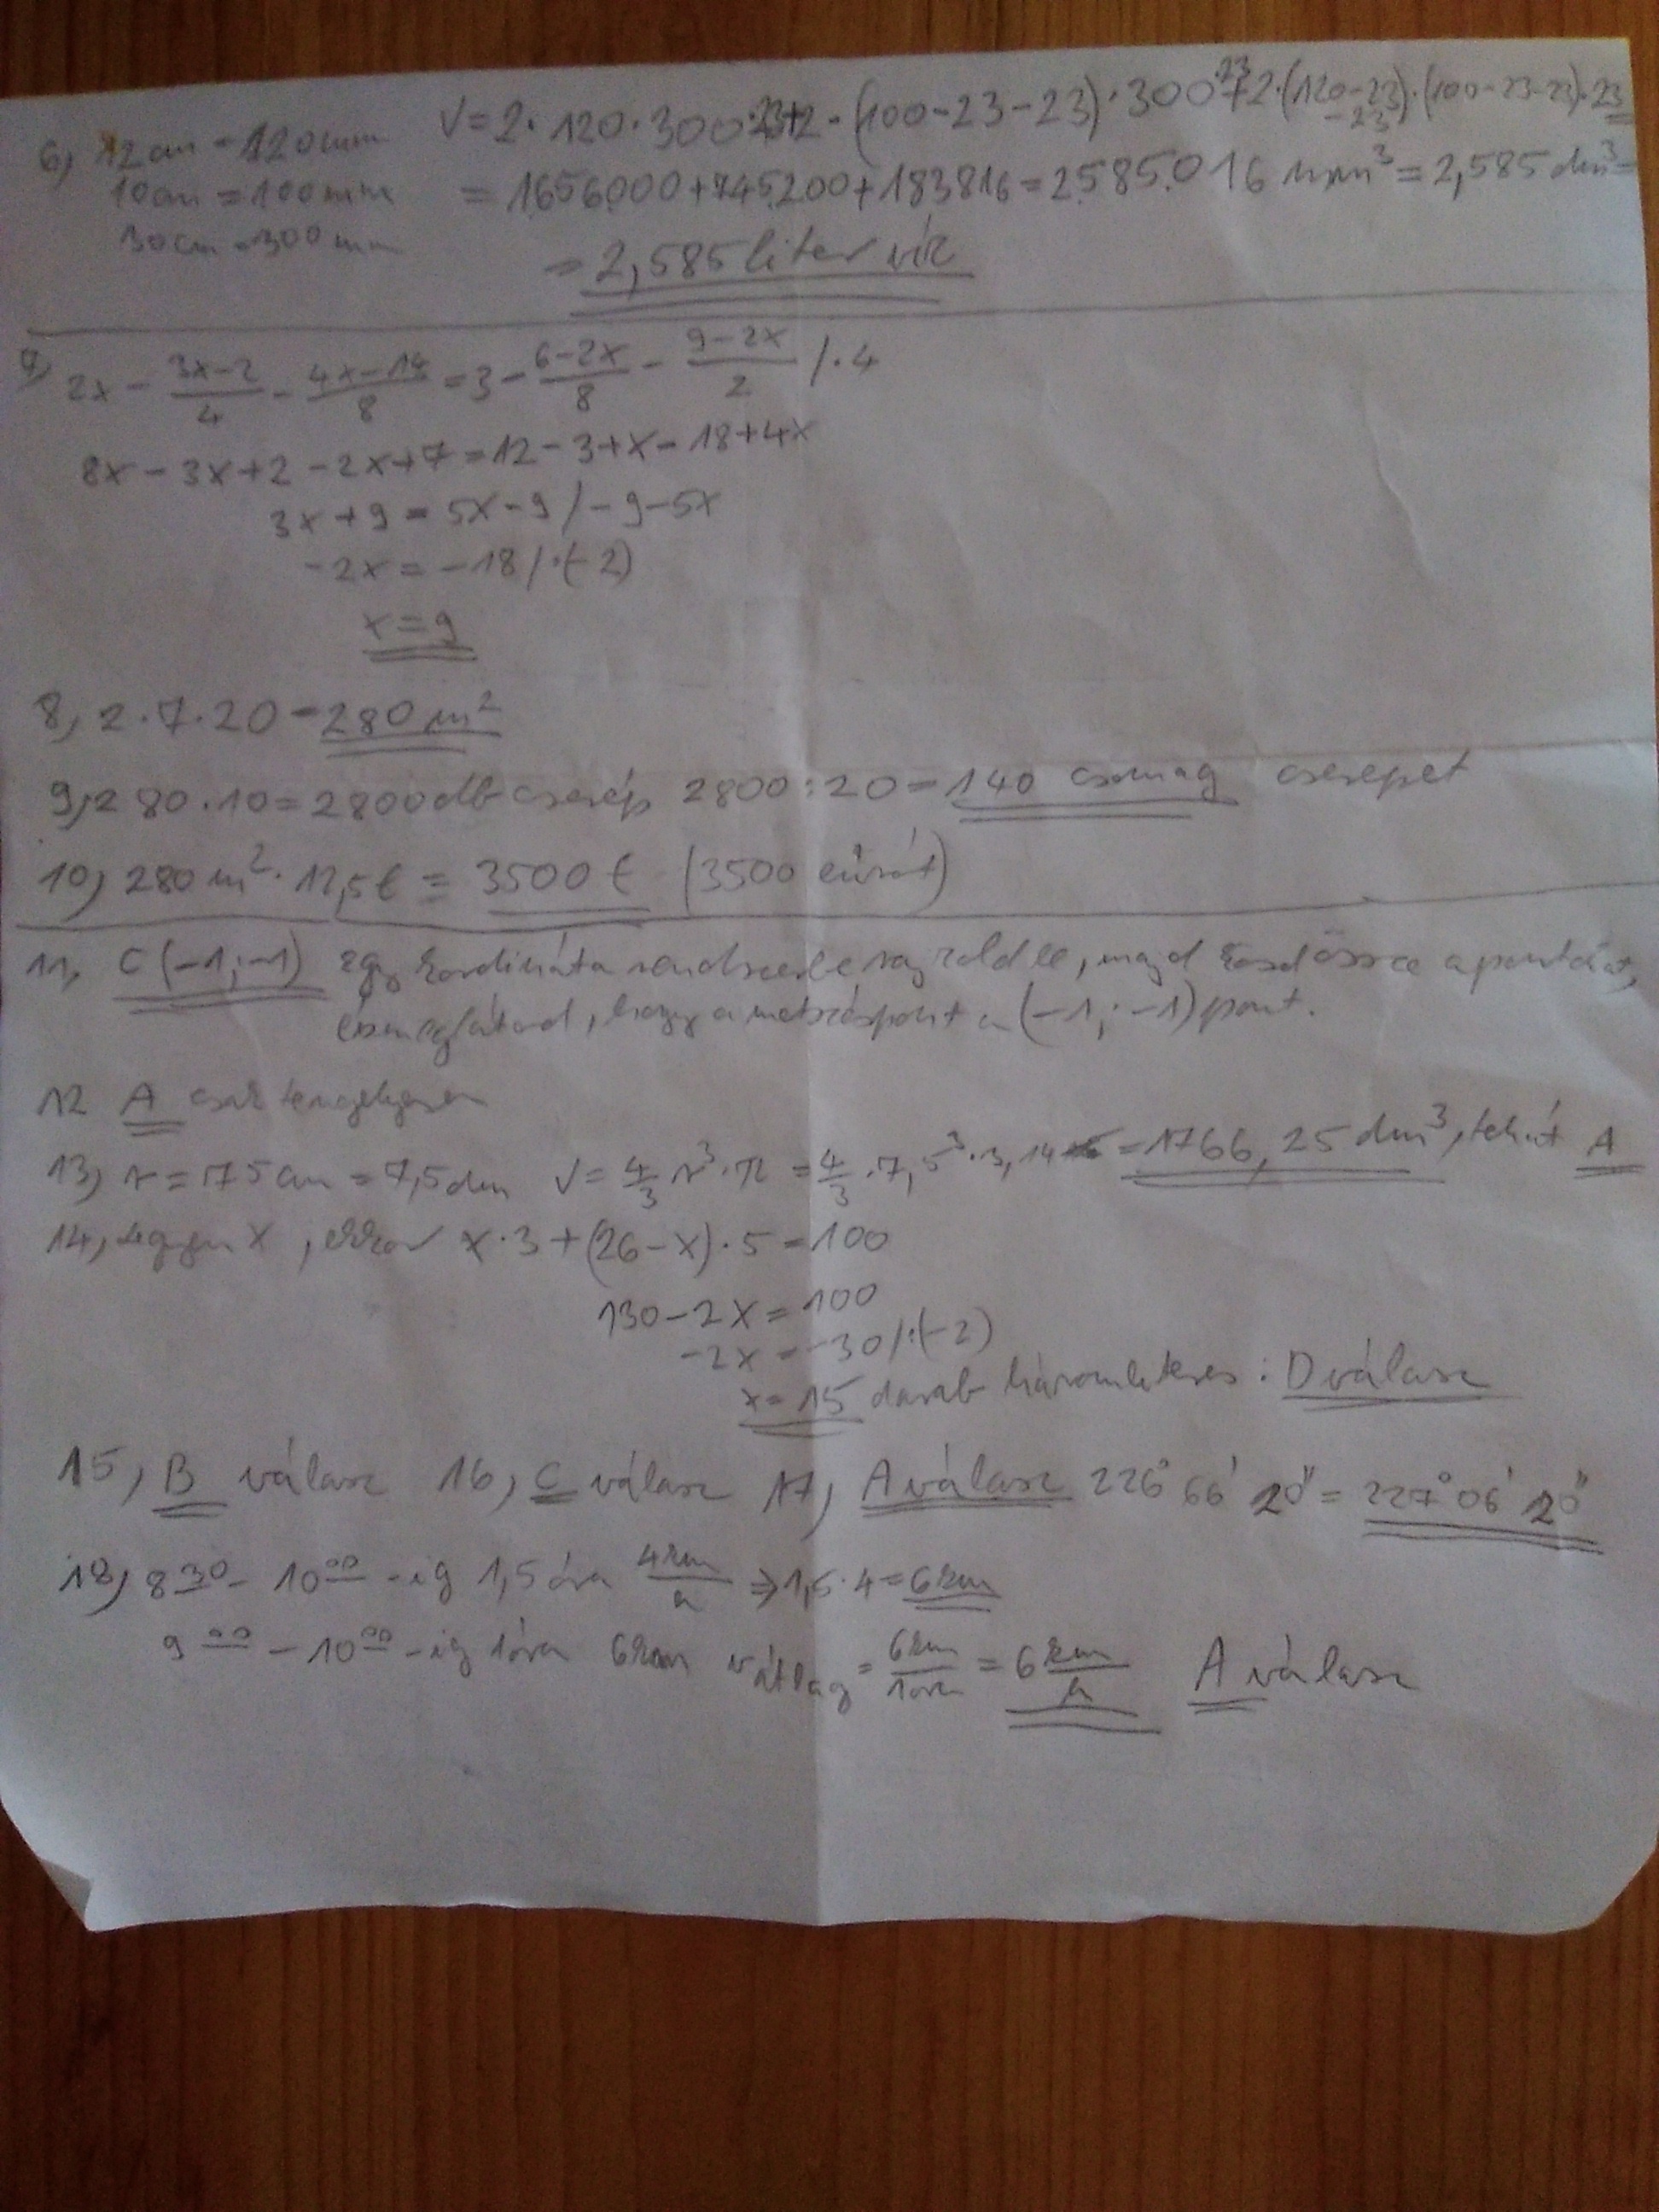 6, 12cm = 120mm V=2·120·300·23+2·(100-23-23)·300·23+2·(120-23-23)·(100-23-23)·23
10cm = 100mm = 1656000+745200+183816=2585016 mm³=2,585 dm³=
30cm = 300mm = 2,585 liter víz
7, 2x - \frac{3x-2}{4} - \frac{4x-14}{8} = 3 - \frac{6-2x}{8} - \frac{9-2x}{2} /·4
8x-3x+2-2x+7=12-3+x-18+4x
3x+9=5x-9 /-9-5x
-2x=-18 /:(-2)
x=9
8, 2·7·20=280 m²
9, 280·10=2800 db cserép 2800:20=140 csomag cserepet
10, 280 m²·12,5€=3500€ (3500 eurót)
11, C(-1;-1) egy koordináta rendszerbe rajzold le, majd kösd össze a pontokat,
és megláttod, hogy a metszéspont a (-1;-1) pont.
12 A csak tengelyesen
13, r=75cm=7,5dm V=\frac{4}{3} r³·π=\frac{4}{3}·7,5³·3,14=1766,25 dm³, tehát A
14, legyen x, ekkor x·3+(26-x)·5=100
130-2x=100
-2x=-30 /:(-2)
x=15 darab háromliteres: D válasz
15, B válasz 16, C válasz 17, A válasz 226° 66' 20"=227° 06' 20"
18, 8 30 - 10 00 -ig 1,5 óra \frac{4km}{h} ⇒ 1,5·4=6km
9 00 - 10 00 -ig 1óra 6km v átlag = \frac{6km}{1óra} = 6\frac{km}{h} A válasz